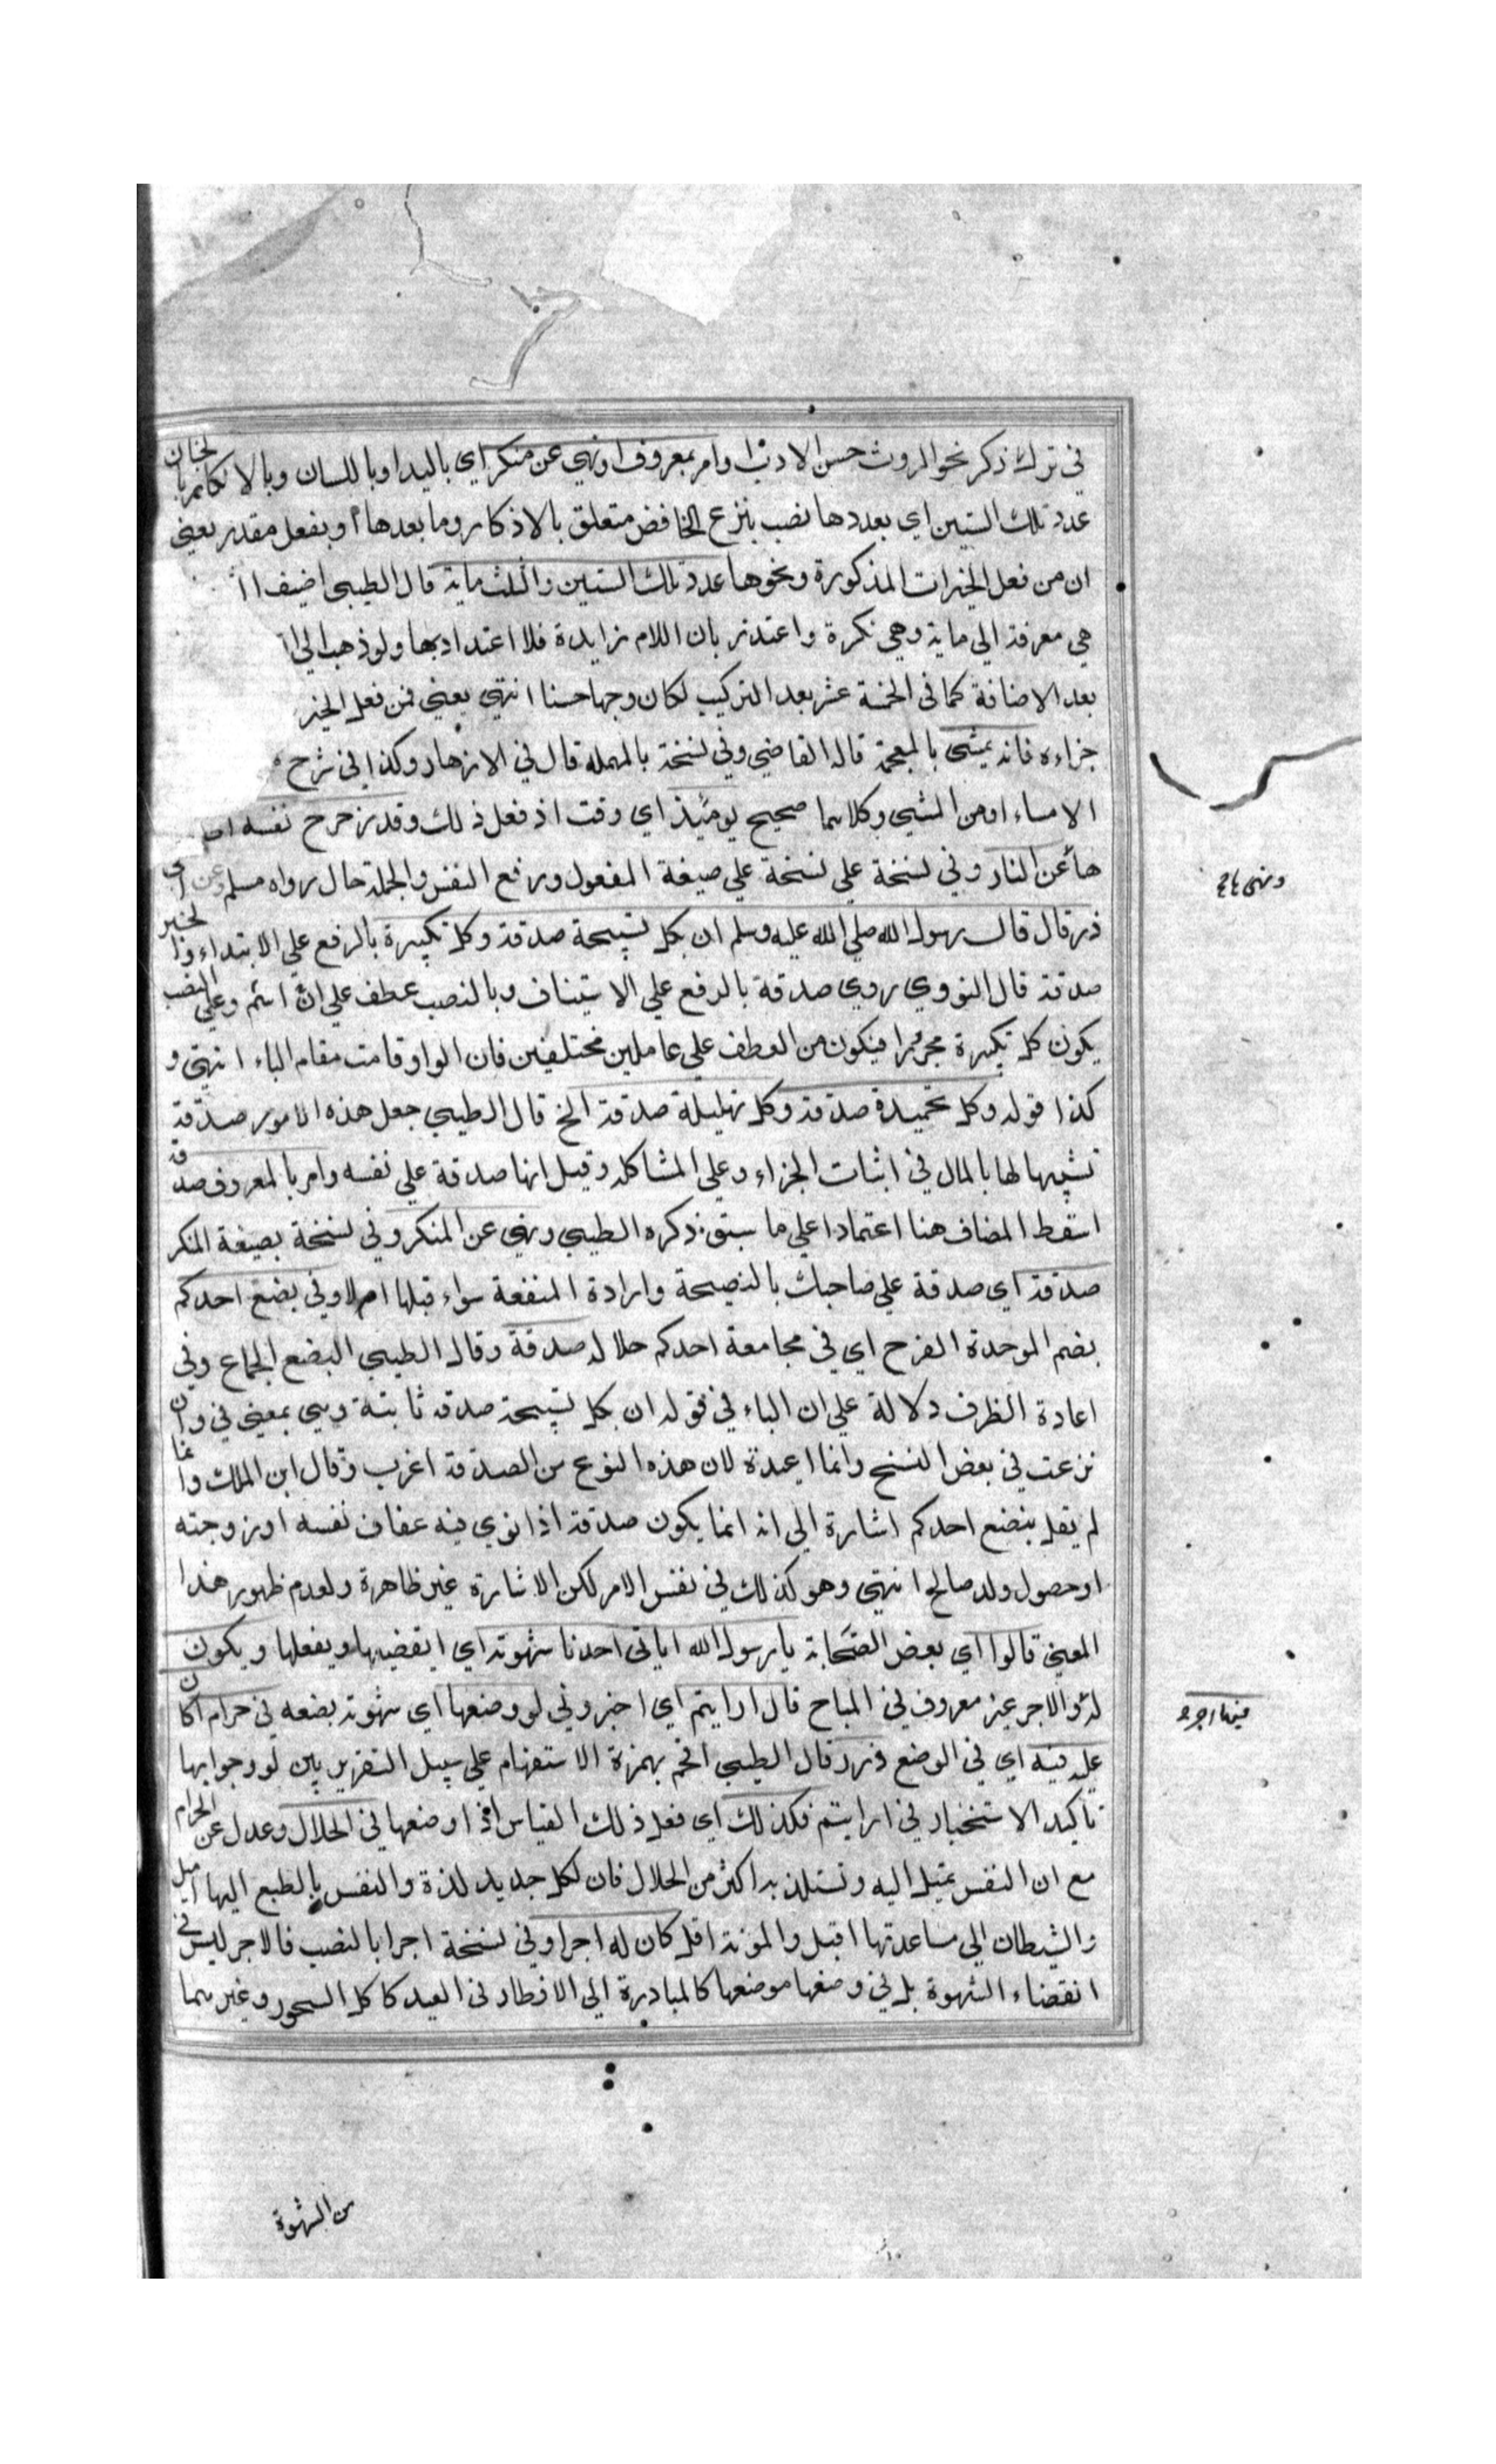 في ترك ذكر نحو الروث حسن الادب او امر بمعروف او نهي عن منكر اي باليد او باللسان وبالانكار بالجنان
عدد تلك الستين اي بعددها نصب بنزع الخافض متعلق بالاذكار وما بعدها او بفعل مقدر يعني
ان من فعل الخيرات المذكورة ونحوها عدد تلك الستين والثلث ماية قال الطيبي اضيف ا
هي معرفة الي ماية وهي نكرة واعتذر بان اللام زايدة فلا اعتداد بها ولو ذهب الي ا
بعد الاضافة كما في الخمسة عشر بعد التركيب لكان وجها حسنا انتهي يعني فمن فعل الخير
جزاءه فانه يمشي بالمعجمة قاله القاضي وفي نسخة بالمهملة قال في الازهار وكذا في شرح
الامساء او من المشي وكلاهما صحيح يومئذ اي وقت اذ فعل ذلك وقد زحزح نفسه اي
ها عن النار وفي نسخة علي نسخة علي صيغة المفعول ورفع النفس والجملة حال رواه مسلم وعن ابي
ذر قال قال رسول الله صلي الله عليه وسلم ان بكل تسبيحة صدقة وكل تكبيرة بالرفع علي الابتداء والخبر
صدقة قال النووي روي صدقة بالرفع علي الاستيناف وبالنصب عطف علي ان اسم وعلي النصب
يكون كل تكبيرة مجرورا فيكون من العطف علي عاملين مختلفين فان الواو قامت مقام الباء انتهي و
كذا قوله وكل تحميدة صدقة وكل تهليلة صدقة الخ قال الطيبي جعل هذه الامور صدقة
تشبيها لها بالمال في اثبات الجزاء وعلي المشاكلة وقيل انها صدقة علي نفسه وامر بالمعروف صدقة
اسقط المضاف هنا اعتمادا علي ما سبق ذكره الطيبي ونهي عن المنكر وفي نسخة بصيغة المنكر
صدقة اي صدقة علي صاحبك بالنصيحة وارادة المنفعة سواء قبلها ام لا وفي بضع احدكم
بضم الموحدة الفرج اي في مجامعة احدكم حلاله صدقة وقال الطيبي البضع الجماع وفي
اعادة الظرف دلالة علي ان الباء في قوله ان بكل تسبيحة صدقة ثابتة وهي بمعني في وان
نزعت في بعض النسخ وانما اعيدة لان هذه النوع من الصدقة اغرب وقال ابن الملك وانما
لم يقل ببضع احدكم اشارة الي انه انما يكون صدقة اذا نوي فيه عفاف نفسه او زوجته
او حصول ولد صالح انتهي وهو كذلك في نفس الامر لكن الاشارة غير ظاهرة ولعدم ظهور هذا
المعني قالوا اي بعض الصحابة يا رسول الله اياتي احدنا شهوته اي ايقضيها ويفعلها ويكون
له والاجر غير معروف في المباح قال ارايتم اي اخبروني لو وضعها اي شهوة بضعه في حرام اكان
عليه فيه اي في الوضع وزر قال الطيبي اقحم بهمزة الاستفهام علي سبيل التقرير بين لو وجوابها
تاكيد الاستخبار في ارايتم فكذلك اي فعل ذلك القياس اذا وضعها في الحلال وعدل عن الحرام
مع ان النفس تميل اليه وتستلذ به اكثر من الحلال فان لكل جديد لذة والنفس بالطبع اليها اميل
والشيطان الي مساعدتها اقبل والمونة اقل كان له اجرا وفي نسخة اجرا بالنصب فالاجر ليس في
انقضاء الشهوة بل في وضعها موضعها كالمبادرة الي الافطار في العيد كاكل السحور وغيرهما
فيها اجر
من الشهوة